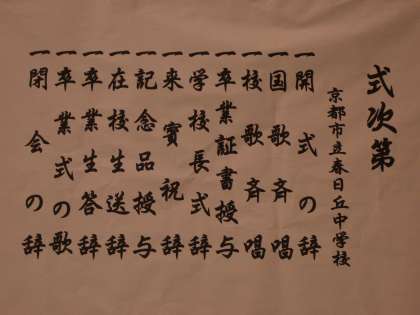 式次第
京都市立春日丘中学校
一開式の辞
一国歌斉唱
一校歌斉唱
一卒業証書授与
一学校長式辞
一来賓祝辞
一記念品授与
一在校生送辞
一卒業生答辞
一卒業式の歌
一閉会の辞